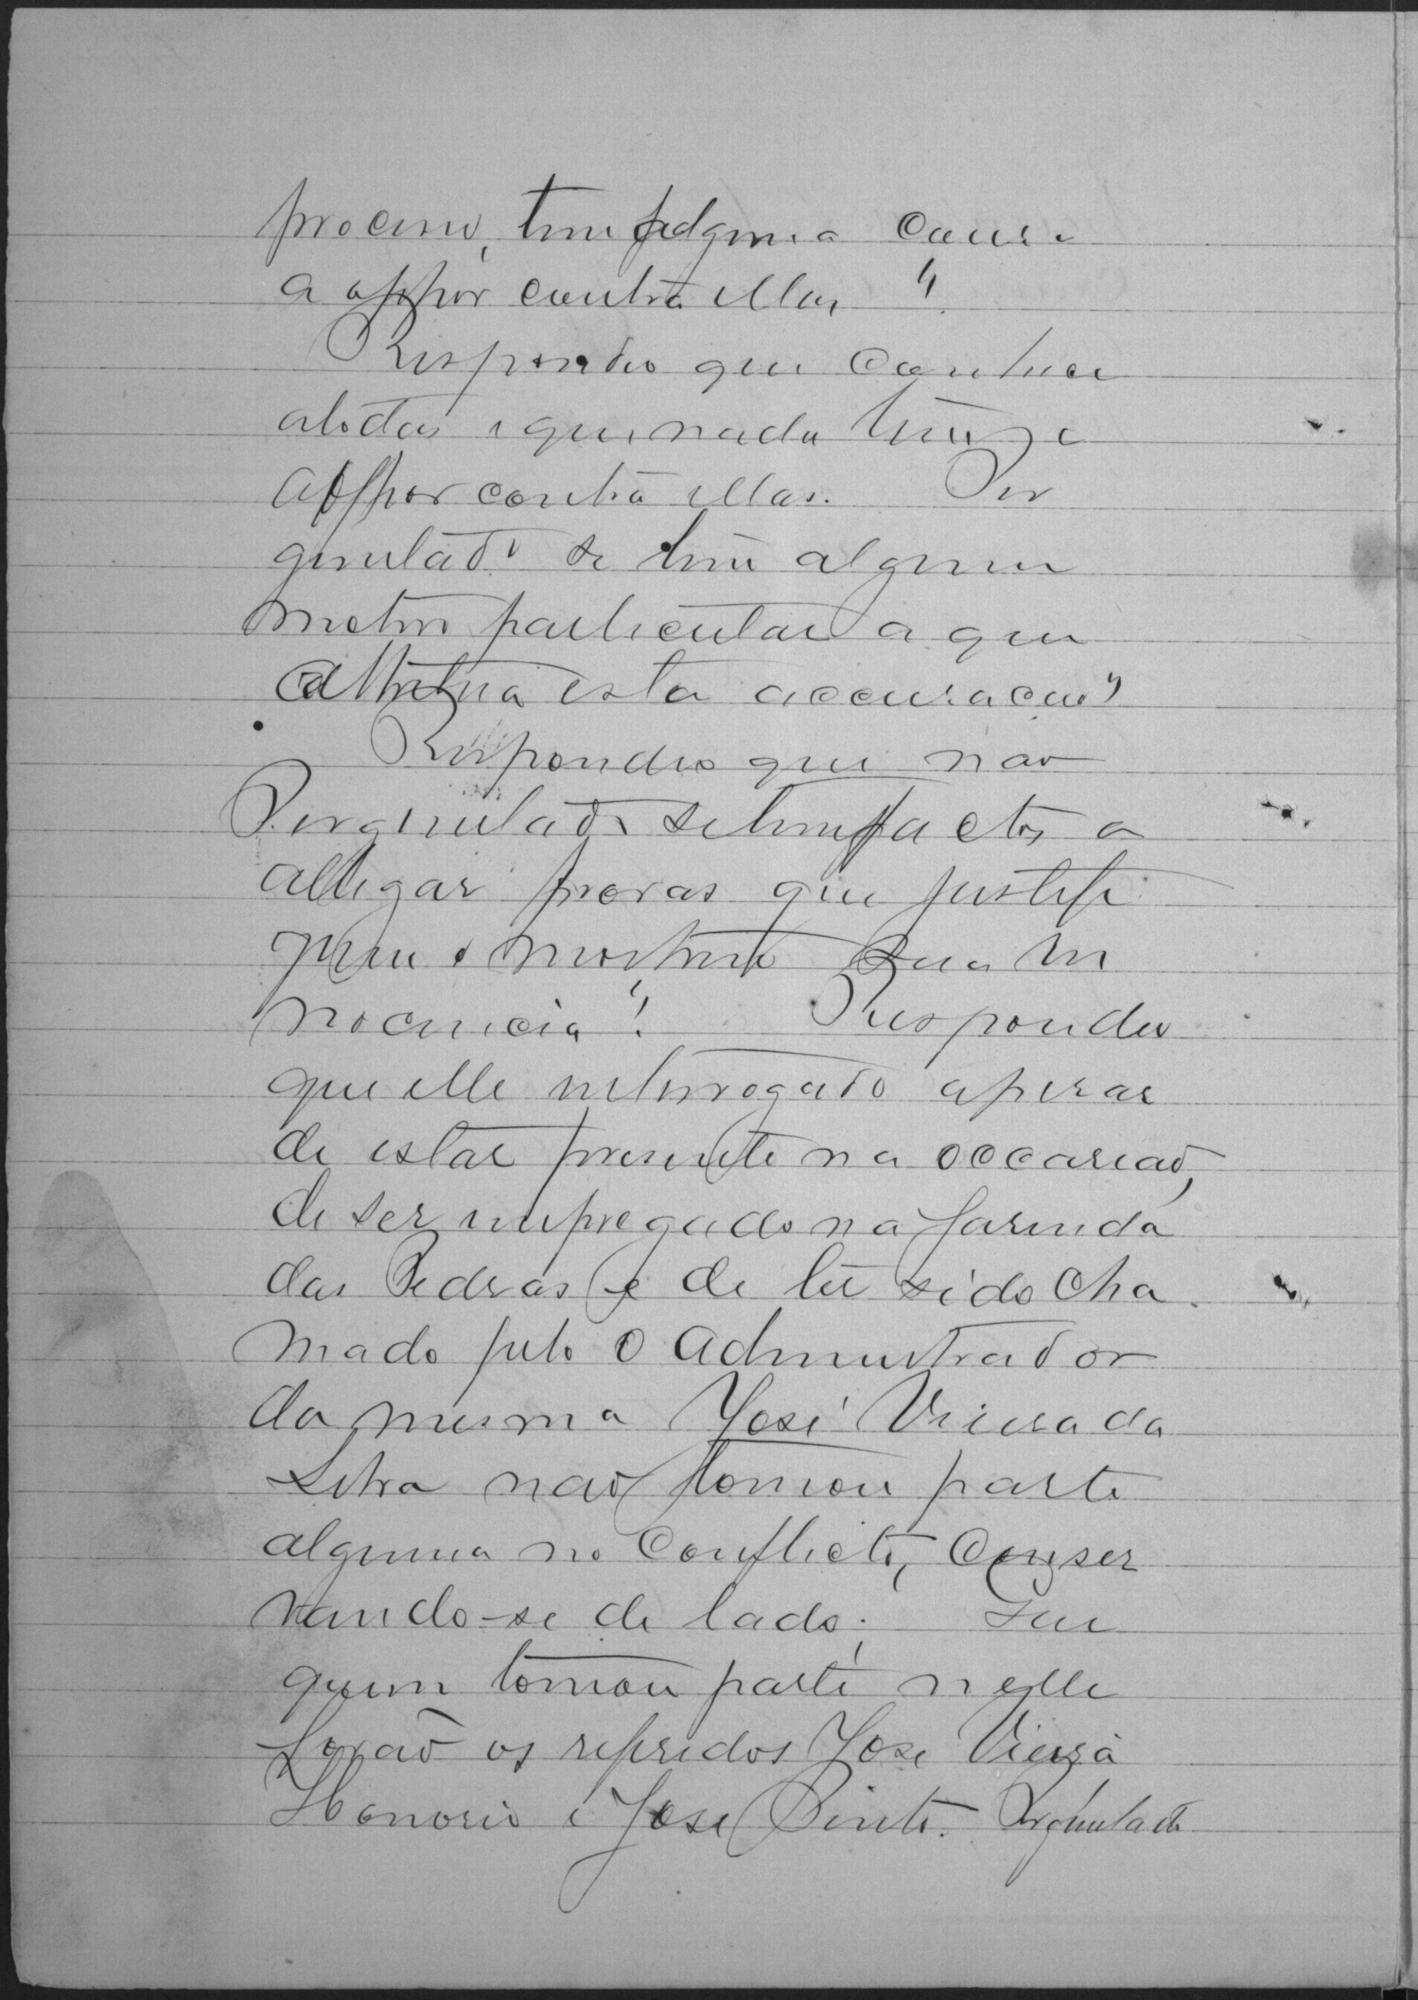 processo, tem alguma cousa
a oppor contra ellas?
Respondeo que conhece
a todas e que nada tem a
appor contra ellas. Per
guntado se tem algum
motivo particular a que
attribua esta accusacao?
Respondeo que não
Perguntado se tem factos a
allegar provas que justifi
quem e mostrem sua in
nocencia? Respondeo
que elle interrogado apesar
de estar presente na occasiaõ,
de ser empregado na fasenda
das Pedras e de ter sido cha
mado pelo o administrador
da mesma José Vieira da
Silva não tomou parte
alguma no conflicto, conser
vando-se de lado; Que
quem tomou parte nelle
foraõ os referidos Jose Vieira
Honorio e Jose Pinto. Perguntado